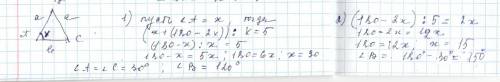 a a
A x C
b
1) пусть ∠A = x, тогда
(x+(180-2x)) : x = 5
(180-x) : x = 5
180-x = 5x; 180=6x; x=30
∠A = ∠C = 30°, ∠B = 120°
2) (180-2x) : 5 = 2x
180-2x = 10x
180=12x; x = 15
∠B = 180°-30°=150°